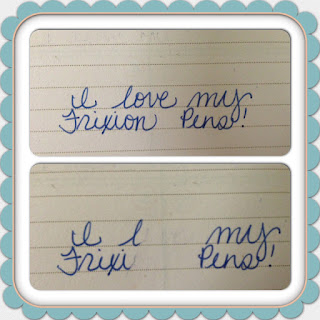 I love my
Frixion Pens!
I l my
Frixi Pens!